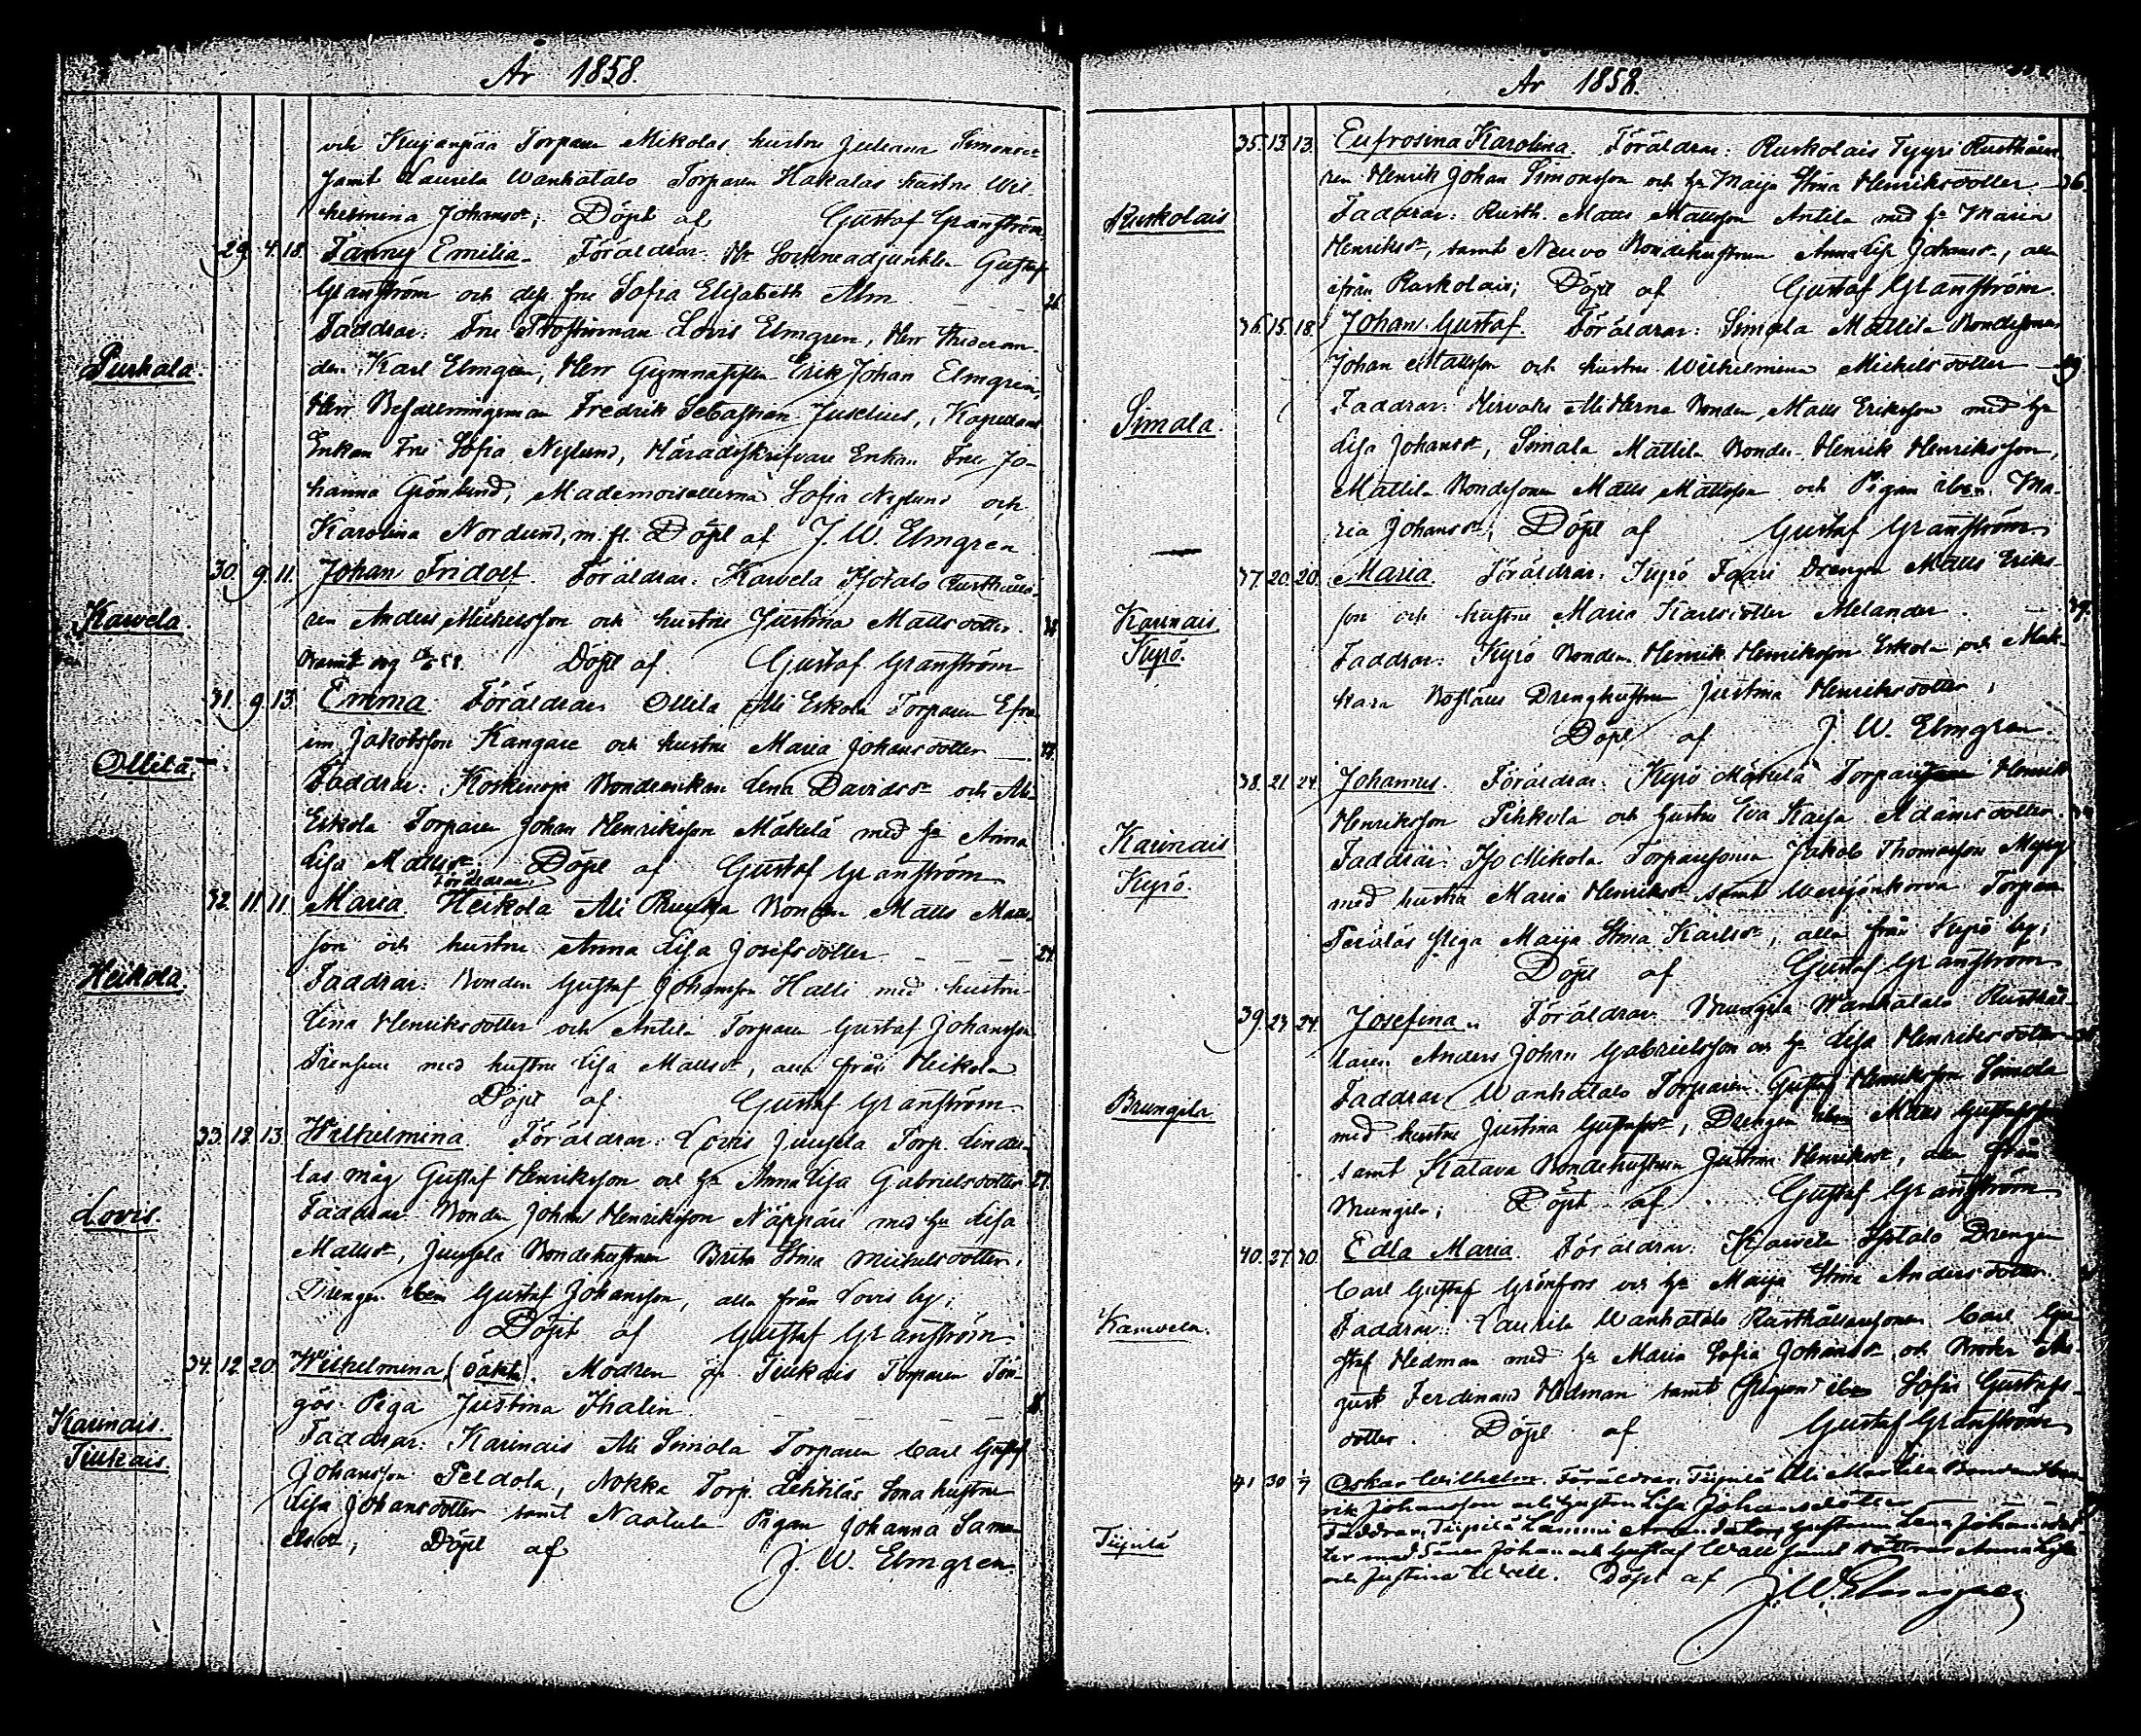 År 1858.
och Kujanpää Torparen Mikolas hustru Juliana Simonsdr
samt Laurela Wanhatalo Torparen Hakalas hustru Wil-
helmina Johansdr; Döpt af Gustaf Granström.
29. 4. 18. Fanny Emilia. Föräldrar: Hr Sockneadjunkten Gustaf
Granström och dess fru Sofia Elisabeth Alm
Purkala.
Faddrar: Fru Prostinnan Lovis Elmgren, Herr Studeran-
den Karl Elmgren, Herr Gymnasisten Erik Johan Elmgren,
Herr Befallningsman Fredrik Sebastian Juselius, Kapellans
Enkan Fru Sofia Neglund, Häradsskrifvare Enkan Fru Jo-
hanna Grönlund, Mademoisellerna Sofia Neglund och
Karolina Nordlund, m. fl. Döpt af J. W. Elmgren
30. 9. 11. Johan Fridolf. Föräldrar: Karvela Isotalo Rusthålla-
Karvela.
ren Anders Michelsson och hustru Justina Mattsdotter.
Döpt af Gustaf Granström
31. 9. 13. Emma. Föräldrar: Ollila Ali Eskola Torparen Efra-
im Jakobsson Kangare och hustru Maria Johansdotter
Ollila.
Faddrar: Koskenoja Bondeenkan Lena Davidsdr och Ali-
Eskola Torparen Johan Henriksson Mäkelä med hu Anna
Lisa Mattsdr. Döpt af Gustaf Granström
Föräldrar:
32. 11. 11. Maria. Heikola Ali Ruska Bonden Matts Matts-
son och hustru Anna Lisa Josefsdotter 24.
Heikola.
Faddrar: Bonden Gustaf Johansson Halli med hustru
Lina Henriksdotter och Antila Torparen Gustaf Johansson
med hustru Lisa Mattsdr, alla från Heikola
Döpt af Gustaf Granström
33. 12. 13. Wilhelmina. Föräldrar: Lovis Juusela Torp. Linde-
las måg Gustaf Henriksson och hu Anna Lisa Gabrielsdotter 27.
Lovis.
Faddrar: Bonden Johan Henriksson Näppäri med hu Lisa
Mattsdr, Juusela Bondehustrun Brita Stina Michelsdotter,
Drengen iben Gustaf Johansson, alla från Lovis by;
Döpt af Gustaf Granström
34. 12. 20. Wilhelmina, (oäkta). Modren är Tiukais Torparen Tön-
gös Piga Justina Thalin
Karinais.
Tiukais.
Faddrar: Karinais Ali Simola Torparen Carl Gustaf
Johansson Peldola, Nokka Torp. Lehtiläs Sona hustru
Lisa Johansdotter samt Naatula Pigan Johanna Samu-
elsdr; Döpt af J. W. Elmgren.
År 1858.
35. 13. 13. Eufrosina Karolina. Föräldrar: Ruskolais Tyyri Rusthålla-
ren Henrik Johan Simonsson och hu Maija Stina Henriksdotter. 36.
Ruskolais
Faddrar: Rusth. Matts Mattsson Antila med hu Maria
Henriksdr, samt Neuvo Bondehustrun Anna Lisa Johansdr, alla
ifrån Ruskolais; Döpt af Gustaf Granström.
36. 15. 18. Johan Gustaf. Föräldrar: Simala Mattila Bondesonen
Johan Mattsson och hustru Wilhelmina Michelsdotter
Simala.
Faddrar: Hirvaks Bonden Matts Eriksson med hu
Lisa Johansdr, Simala Mattila Bonden Henrik Henriksson,
Mattila Bondesonen Matts Mattsson och Pigan iben Ma-
ria Johansdr; Döpt af Gustaf Granström
37. 20. 20. Maria. Föräldrar: Kyrö Drengen Matts Eriks-
son och hustru Maria Karlsdotter Melander. 39.
Karinais
Kyrö.
Faddrar: Kyrö Bonden Henrik Henriksson Eskola och
Drenghustrun Justina Henriksdotter;
Döpt af J. W. Elmgren.
38. 21. 24. Johannes. Föräldrar: Kyrö Mäkelä Torparen Henrik
Henriksson Pihkola och hustru Eva Kaisa Adamsdotter.
Karinais
Kyrö.
Faddrar: Iso Mikola Torparesonen Jakob Thomasson
med hustru Maria Henriksdr, samt Torparen
Peräläs Piga Maija Stina Karlsdr, alla från Kyrö by;
Döpt af Gustaf Granström
39. 23. 24. Josefina. Föräldrar: Brungila Wanhatalo Rusthål-
laren Anders Johan Gabrielsson och hu Lisa Henriksdotter
Brungila
Faddrar: Wanhatalo Torparen Gustaf Henriksson Simola
med hustru Justina Gustafsdr, Drengen iben Matts Gustafsson
samt Katava Bondehustrun Justina Henriksdr, alla från
Brungila; Döpt af Gustaf Granström
40. 27. 30. Edla Maria. Föräldrar: Karvela Isotalo Drengen
Carl Gustaf Grönfors och hu Maija Stina Andersdotter.
Karvela.
Faddrar: Laurila Wanhatalo Rusthållaresonen Carl Gu-
staf Hedman med hu Maria Sofia Johansdr och Broder Au-
gust Ferdinand Hedman samt Pigan iben Sofia Gustafs-
dotter. Döpt af Gustaf Granström
41 30 Oskar Wilhelm. Föräldrar: Tiipilä Ali Marttila Bonden Hen-
rik Johansson och hustru Lisa Johansdotter
Tiipilä
Faddrar: Tiipilä Lammi Arrendators hustrun Lena Johansdot-
ter med söner Johan och Gustaf Wall samt döttrar Anna Lisa
och Justina Wall. Döpt af J. W. Elmgren